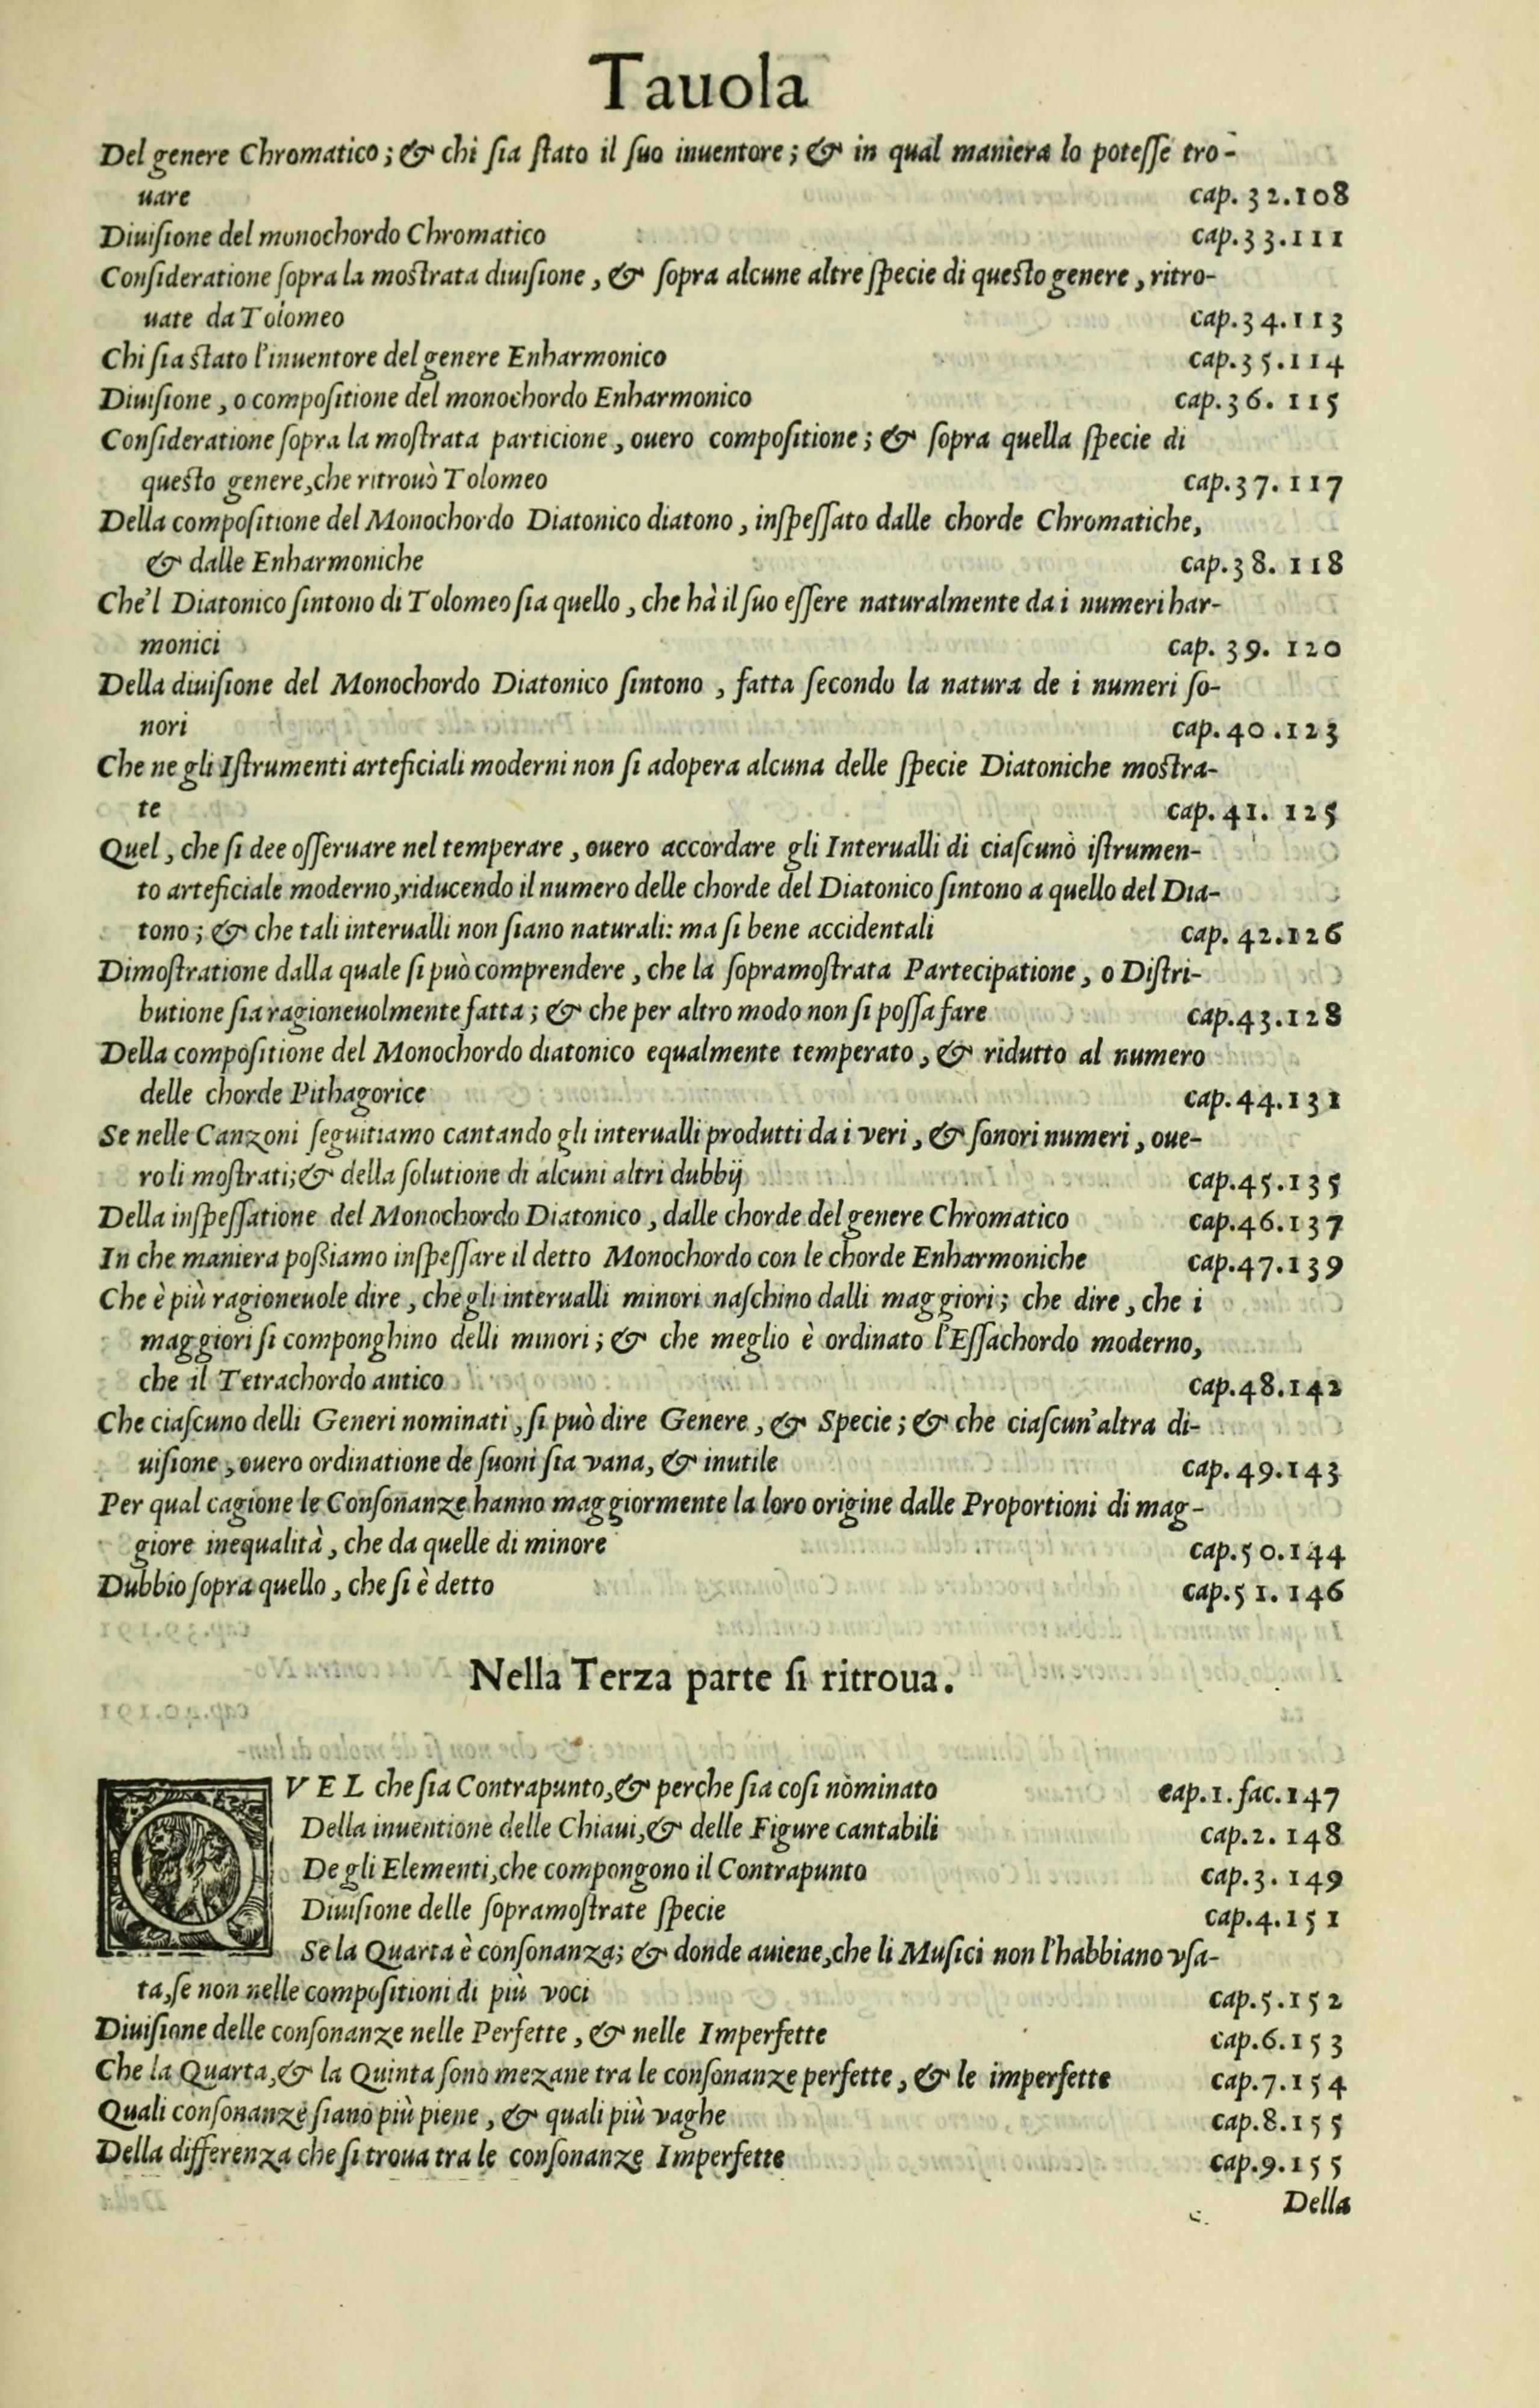 Tauola
Del genere Chromatico; & chi ſia ſtato il ſuo inuentore; & in qual maniera lo poteſſe tro-
uare cap. 32.108
Diuiſione del monochordo Chromatico cap.33.111
Conſideratione ſopra la moſtrata diuiſione, & ſopra alcune altre ſpecie di queſto genere, ritro-
uate da Tolomeo cap.34.113
Chi ſia ſtato l'inuentore del genere Enharmonico cap.35.114
Diuiſione, o compoſitione del monochordo Enharmonico cap.36. 115
Conſideratione ſopra la moſtrata particione, ouero compoſitione; & ſopra quella ſpecie di
queſto genere, che ritrouò Tolomeo cap.37. 117
Della compoſitione del Monochordo Diatonico diatono, inſpeſſato dalle chorde Chromatiche,
& dalle Enharmoniche cap.38. 118
Che'l Diatonico ſintono di Tolomeo ſia quello, che hà il ſuo eſſere naturalmente da i numeri har-
monici cap. 39. 120
Della diuiſione del Monochordo Diatonico ſintono, fatta ſecondo la natura de i numeri ſo-
nori cap.40.123
Che ne gli Iſtrumenti arteficiali moderni non ſi adopera alcuna delle ſpecie Diatoniche moſtra-
te cap. 41. 125
Quel, che ſi dee oſſeruare nel temperare, ouero accordare gli Interualli di ciaſcunò iſtrumen-
to arteficiale moderno, riducendo il numero delle chorde del Diatonico ſintono a quello del Dia-
tono; & che tali interualli non ſiano naturali: ma ſi bene accidentali cap. 42.126
Dimoſtratione dalla quale ſi può comprendere, che la ſopramoſtrata Partecipatione, o Diſtri-
butione ſia ragioneuolmente fatta; & che per altro modo non ſi poſſa fare cap.43.128
Della compoſitione del Monochordo diatonico equalmente temperato, & ridutto al numero
delle chorde Pithagorice cap.44.131
Se nelle Canzoni ſeguitiamo cantando gli interualli produtti da i veri, & ſonori numeri, oue-
ro li moſtrati; & della ſolutione di alcuni altri dubbij cap.45.135
Della inſpeſſatione del Monochordo Diatonico, dalle chorde del genere Chromatico cap.46.137
In che maniera poßiamo inſpeſſare il detto Monochordo con le chorde Enharmoniche cap.47.139
Che è più ragioneuole dire, che gli interualli minori naſchino dalli maggiori; che dire, che i
maggiori ſi componghino delli minori; & che meglio è ordinato l'Eſſachordo moderno,
che il Tetrachordo antico cap.48.142
Che ciaſcuno delli Generi nominati, ſi può dire Genere, & Specie; & che ciaſcun'altra di-
uiſione, ouero ordinatione de ſuoni ſia vana, & inutile cap. 49.143
Per qual cagione le Conſonanze hanno maggiormente la loro origine dalle Proportioni di mag-
giore inequalità, che da quelle di minore cap.50.144
Dubbio ſopra quello, che ſi è detto cap.51. 146
Nella Terza parte ſi ritroua.
QVEL che ſia Contrapunto, & perche ſia coſi nòminato cap.1.fac.147
Della inuentione delle Chiaui, & delle Figure cantabili cap.2. 148
De gli Elementi, che compongono il Contrapunto cap.3. 149
Diuiſione delle ſopramoſtrate ſpecie cap.4.151
Se la Quarta è conſonanza; & donde auiene, che li Muſici non l'habbiano vſa-
ta, ſe non nelle compoſitioni di più voci cap.5.152
Diuiſione delle conſonanze nelle Perfette, & nelle Imperfette cap.6.153
Che la Quarta, & la Quinta ſono mezane tra le conſonanze perfette, & le imperfette cap.7.154
Quali conſonanze ſiano più piene, & quali più vaghe cap.8.155
Della differenza che ſi troua tra le conſonanze Imperfette cap.9.155
Della